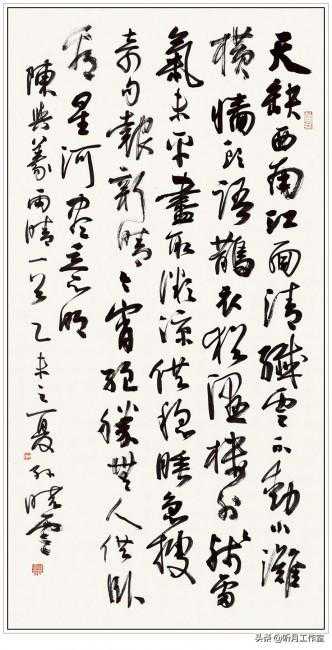 天缺西南江面清纖雲不動小灘
橫墻頭語鵲衣猶濕樓外殘雷
氣未平盡取微涼供穩睡急搜
奇句報新晴今宵絕勝無人供臥
看星河尽意明
陳與義雨晴一首乙未之夏孫曉雲
头条 @听月工作室